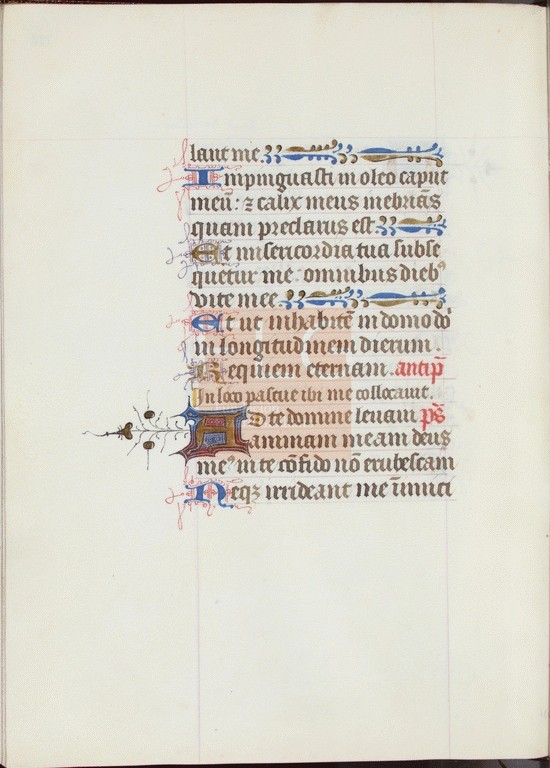 lant me
Impinguasti in oleo caput
meū: ⁊ calix meus inebriās
quam preclarus est
Et misericordia tua subse
quetur me: omnibus dieb⁹
vite mee
Et ut inhabitē in domo dō
in longitudinem dierum.
Requiem eternam. antip̄
In loco pascue ibi me collocavit.
Ad te domine levavi ps̄
animam meam deus
me⁹ in te cōfido nō erubescam
Neqz irrideant me inimici